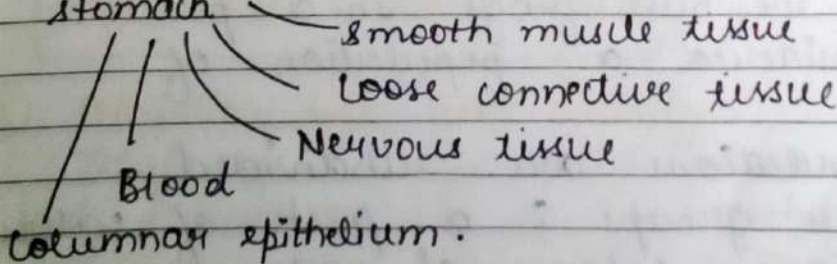 Stomach
smooth muscle tissue
Loose connective tissue
Nervous tissue
Blood
Columnar epithelium.